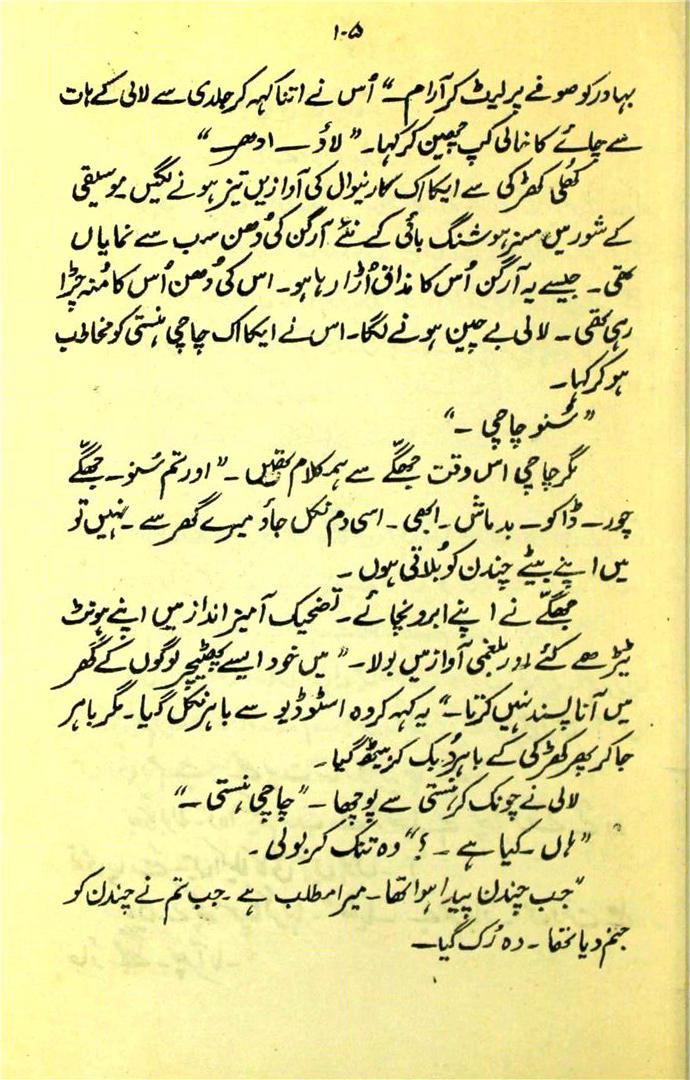 ۱۰۵
بہادر کو صوفے پر لیٹ کر آرام ــ” اُس نے اتنا کہہ کر جلدی سے لالی کے ہات
سے چائے کا خالی کپ چھین کر کہا۔ ”لاؤ ــ ادھر ــ“
کھلی کھڑکی سے ایکا اک کارنیوال کی آوازیں تیز ہونے لگیں موسیقی
کے شور میں مسز ہوشنگ بائی کے نئے آرگن کی دُھن سب سے نمایاں
تھی۔ جیسے یہ آرگن اُس کا مذاق اُڑا رہا ہو۔ اس کی دُھن اُس کا مُنہ چڑا
رہی تھی ۔ لالی بے چین ہونے لگا۔ اس نے ایکا اک چاچی ہنستی کو مخاطب
ہو کر کہا۔
”سُنو چاچی ۔“
مگر چاچی اس وقت جھگّے سے ہمکلام تھیں ۔ ”اور تم سُنو۔ جھگّے
چور۔ ڈاکو۔ بدماش ۔ ابھی ۔ اسی دم نکل جاؤ میرے گھر سے ۔ نہیں تو
میں اپنے بیٹے چندن کو بُلاتی ہوں ۔
جھگّے نے اپنے ابرو نچائے۔ تضحیک آمیز انداز میں اپنے ہونٹ
ٹیڑھے کئے اور بلغمی آواز میں بولا۔ ”میں خود ایسے چھٹیچر لوگوں کے گھر
میں آنا پسند نہیں کرتا۔“ یہ کہہ کر وہ اسٹوڈیو سے باہر نکل گیا۔ مگر باہر
جا کر پھر کھڑکی کے باہر دُبک کر بیٹھ گیا۔
لالی نے چونک کر ہنستی سے پوچھا ۔ ”چاچی ہنستی ۔“
”ہاں ۔ کیا ہے ۔ ؟“ وہ تنک کر بولی ۔
”جب چندن پیدا ہوا تھا۔ میرا مطلب ہے ۔ جب تم نے چندن کو
جنم دیا تھا ۔ وہ رُک گیا۔